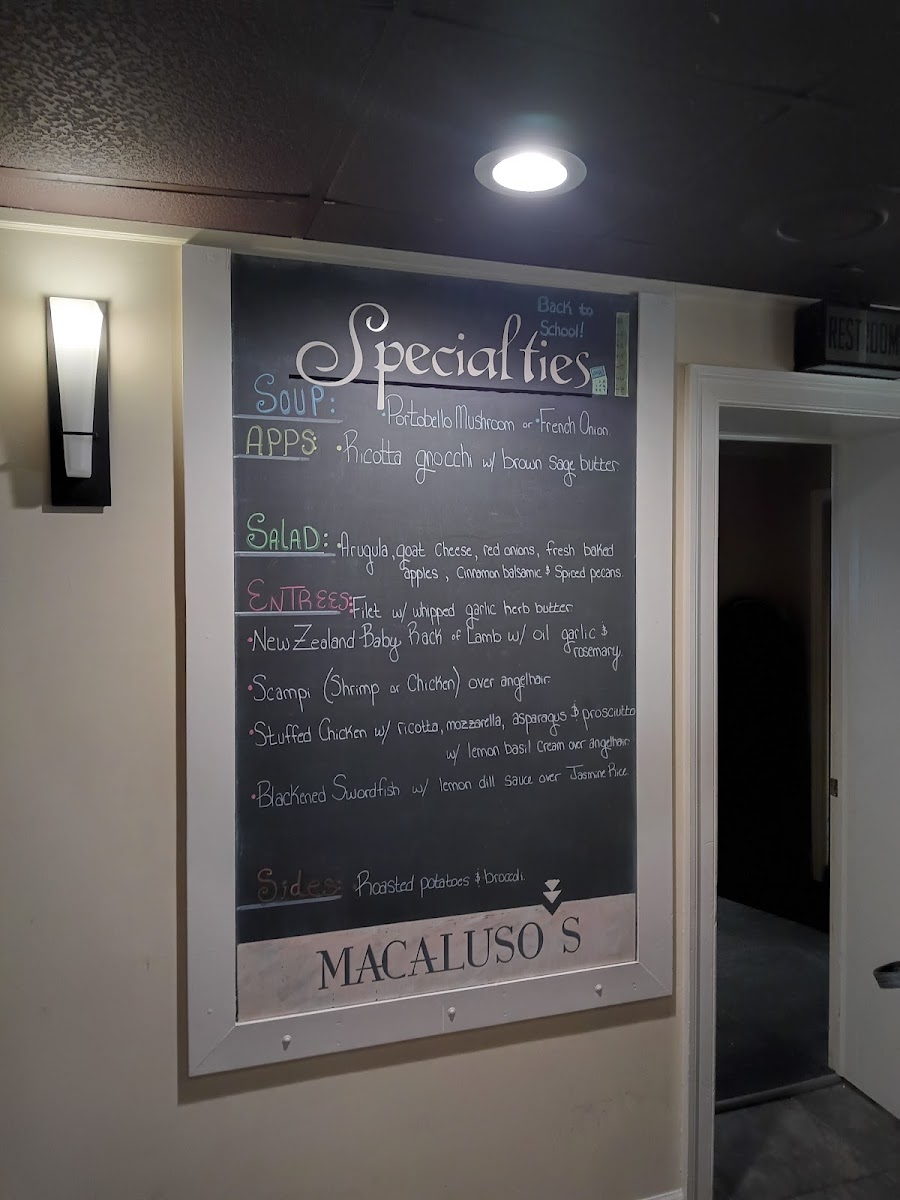 Back to
School!
Specialties
SOUP: • Portobello Mushroom or • French Onion
APPS: • Ricotta gnocchi w/ brown sage butter
SALAD: • Arugula, goat cheese, red onions, fresh baked
apples, cinnamon balsamic & spiced pecans.
ENTREES: Filet w/ whipped garlic herb butter
• New Zealand Baby Rack of Lamb w/ oil garlic &
rosemary.
• Scampi (Shrimp or Chicken) over angelhair.
• Stuffed Chicken w/ ricotta, mozzarella, asparagus & prosciutto
w/ lemon basil cream over angelhair
• Blackened Swordfish w/ lemon dill sauce over Jasmine Rice
Sides: • Roasted potatoes & broccoli.
MACALUSO'S
RESTROOMS